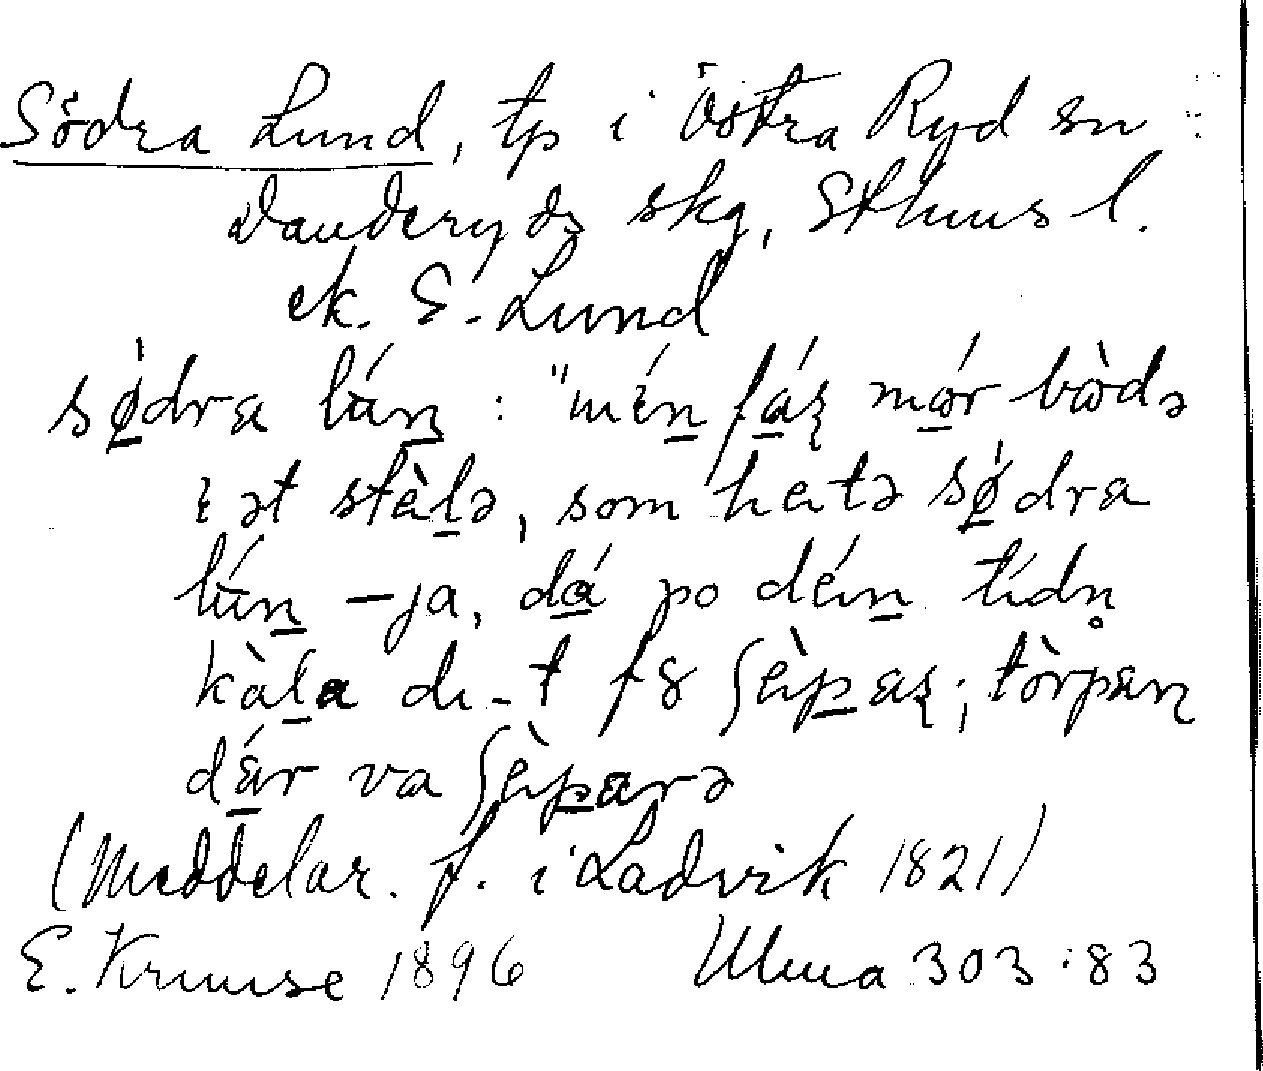 Södra Lund, tp i Östra Ryd sn
Danderyds skg, Sthms l.
ek. S. Lund
sø̀dra lún : "mén fár mór bòdə
ɩ ət stèlə, som hetə sø̀dra
lún – ja, dá po dén tídn̥
kàla dɩ-t fȣ ʃèpaɽ; tòrpen
dár va ʃèparə
(Meddelar. f. i Ladvik 1821)
E. Kruuse 1896 Ulma 303:83